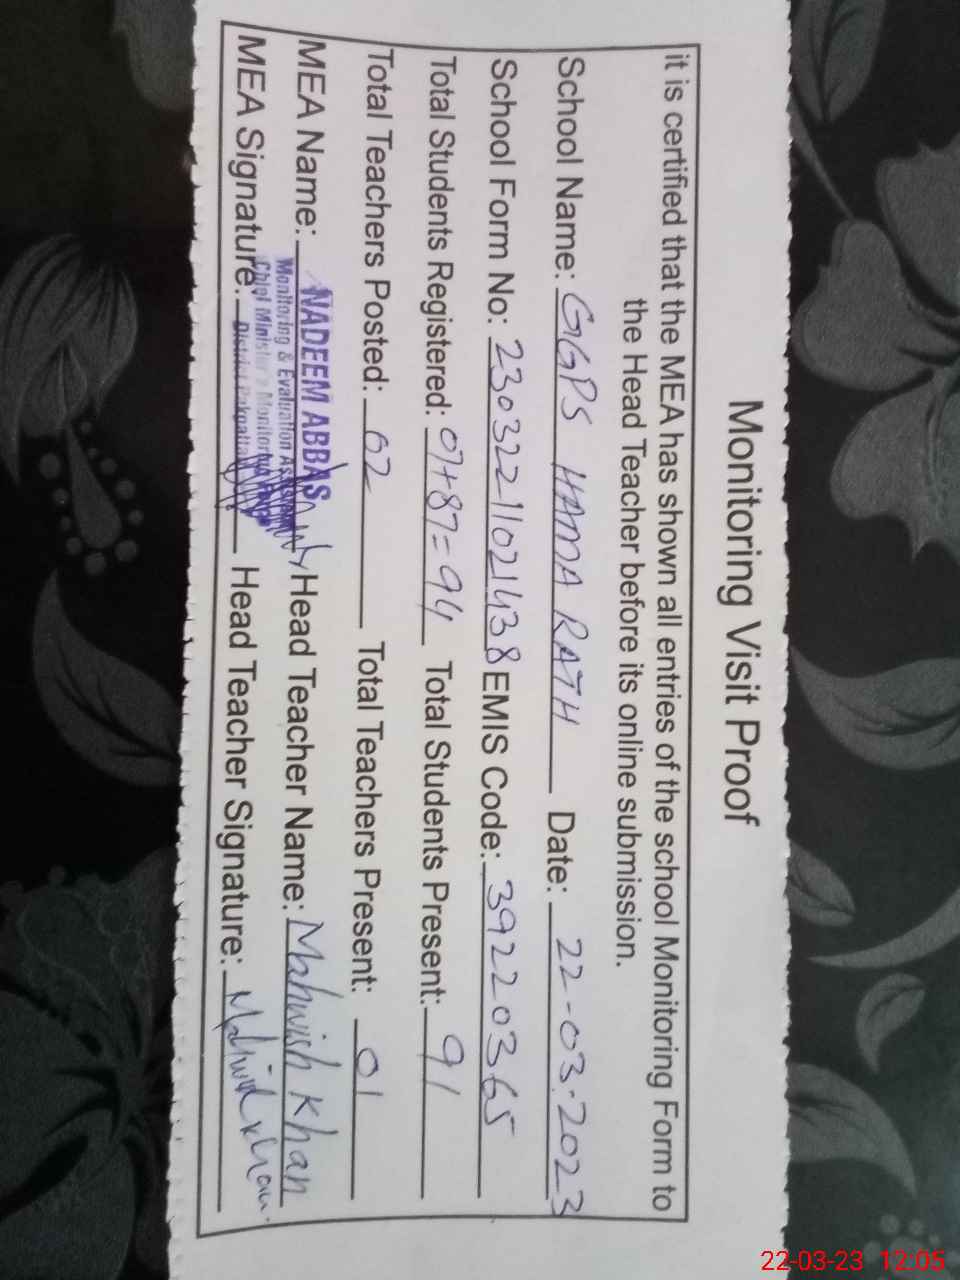 Monitoring Visit Proof
it is certified that the MEA has shown all entries of the school Monitoring Form to
the Head Teacher before its online submission.
School Name: GGPS HAMA RATH Date: 22-03-2023
School Form No: 23032211021438 EMIS Code: 39220365
Total Students Registered: 07+87=94 Total Students Present: 91
Total Teachers Posted: 02 Total Teachers Present: 01
MEA Name: NADEEM ABBAS Head Teacher Name: Mahwish Khan
Monitoring & Evaluation Assistant
Chief Minister's Monitoring Force
MEA Signature: District Pakpattan Head Teacher Signature: Mahwish Khan
22-03-23 12:05